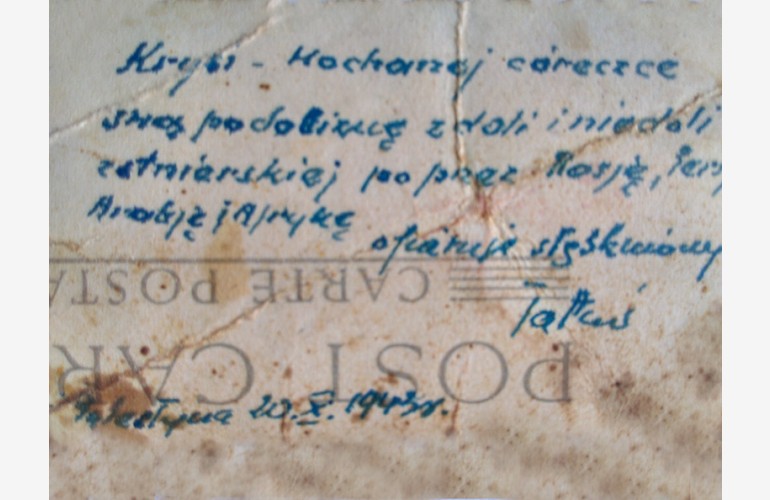 Krysi - Kochanej córeczce
swą podobiznę z doli i niedoli
żołnierskiej poprzez Rosję,
Arabję i Afrykę
ofiaruje stęskniony
Tatuś
CARTE POSTA
POST CAR
Palestyna 20.X.1943r.